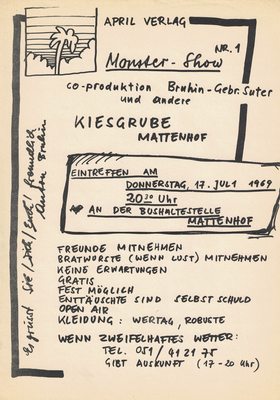 APRIL VERLAG
NR. 1
Monster-Show
co-produktion Bruhin-Gebr. Suter
und andere
KIESGRUBE
MATTENHOF
EINTREFFEN AM
DONNERSTAG, 17. JULI 1969
20 30 Uhr
AN DER BUSHALTESTELLE
MATTENHOF
FREUNDE MITNEHMEN
BRATWÜRSTE (WENN LUST) MITNEHMEN
KEINE ERWARTUNGEN
GRATIS
FEST MÖGLICH
ENTTÄUSCHTE SIND SELBST SCHULD
OPEN AIR
KLEIDUNG: WERTAG, ROBUSTE
WENN ZWEIFELHAFTES WETTER:
TEL. 051/ 41 21 75
GIBT AUSKUNFT (17-20 Uhr)
Es grüsst Sie/Dich/Euch freundlich
Anton Bruhin